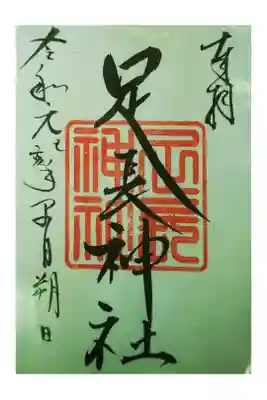 奉拝
足長神社
足長神社
令和元己亥年月朔日